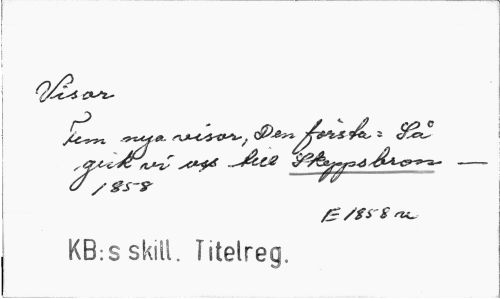 Visor
Fem nya visor, Den första = Så
gick vi oss till Skeppsbron —
1858
E 1858 n
KB:s skill. Titelreg.